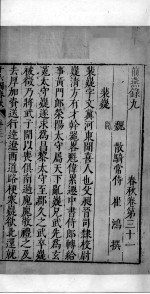 前燕錄九
春秋卷第三十一
魏　散騎常侍　崔鴻　撰
裴嶷
裴嶷字文冀河東聞喜人也父昶晉司隸校尉
嶷清方有幹略累遷中書侍郎轉給
事黃門郎滎陽太守屬天下亂嶷兄武先爲玄
菟太守嶷遂求爲昌黎太守至郡久之武卒嶷
被徵乃將武子開以喪俱還過廆廆敬禮之及
去厚加資送行達遼西道路梗塞嶷欲北還就